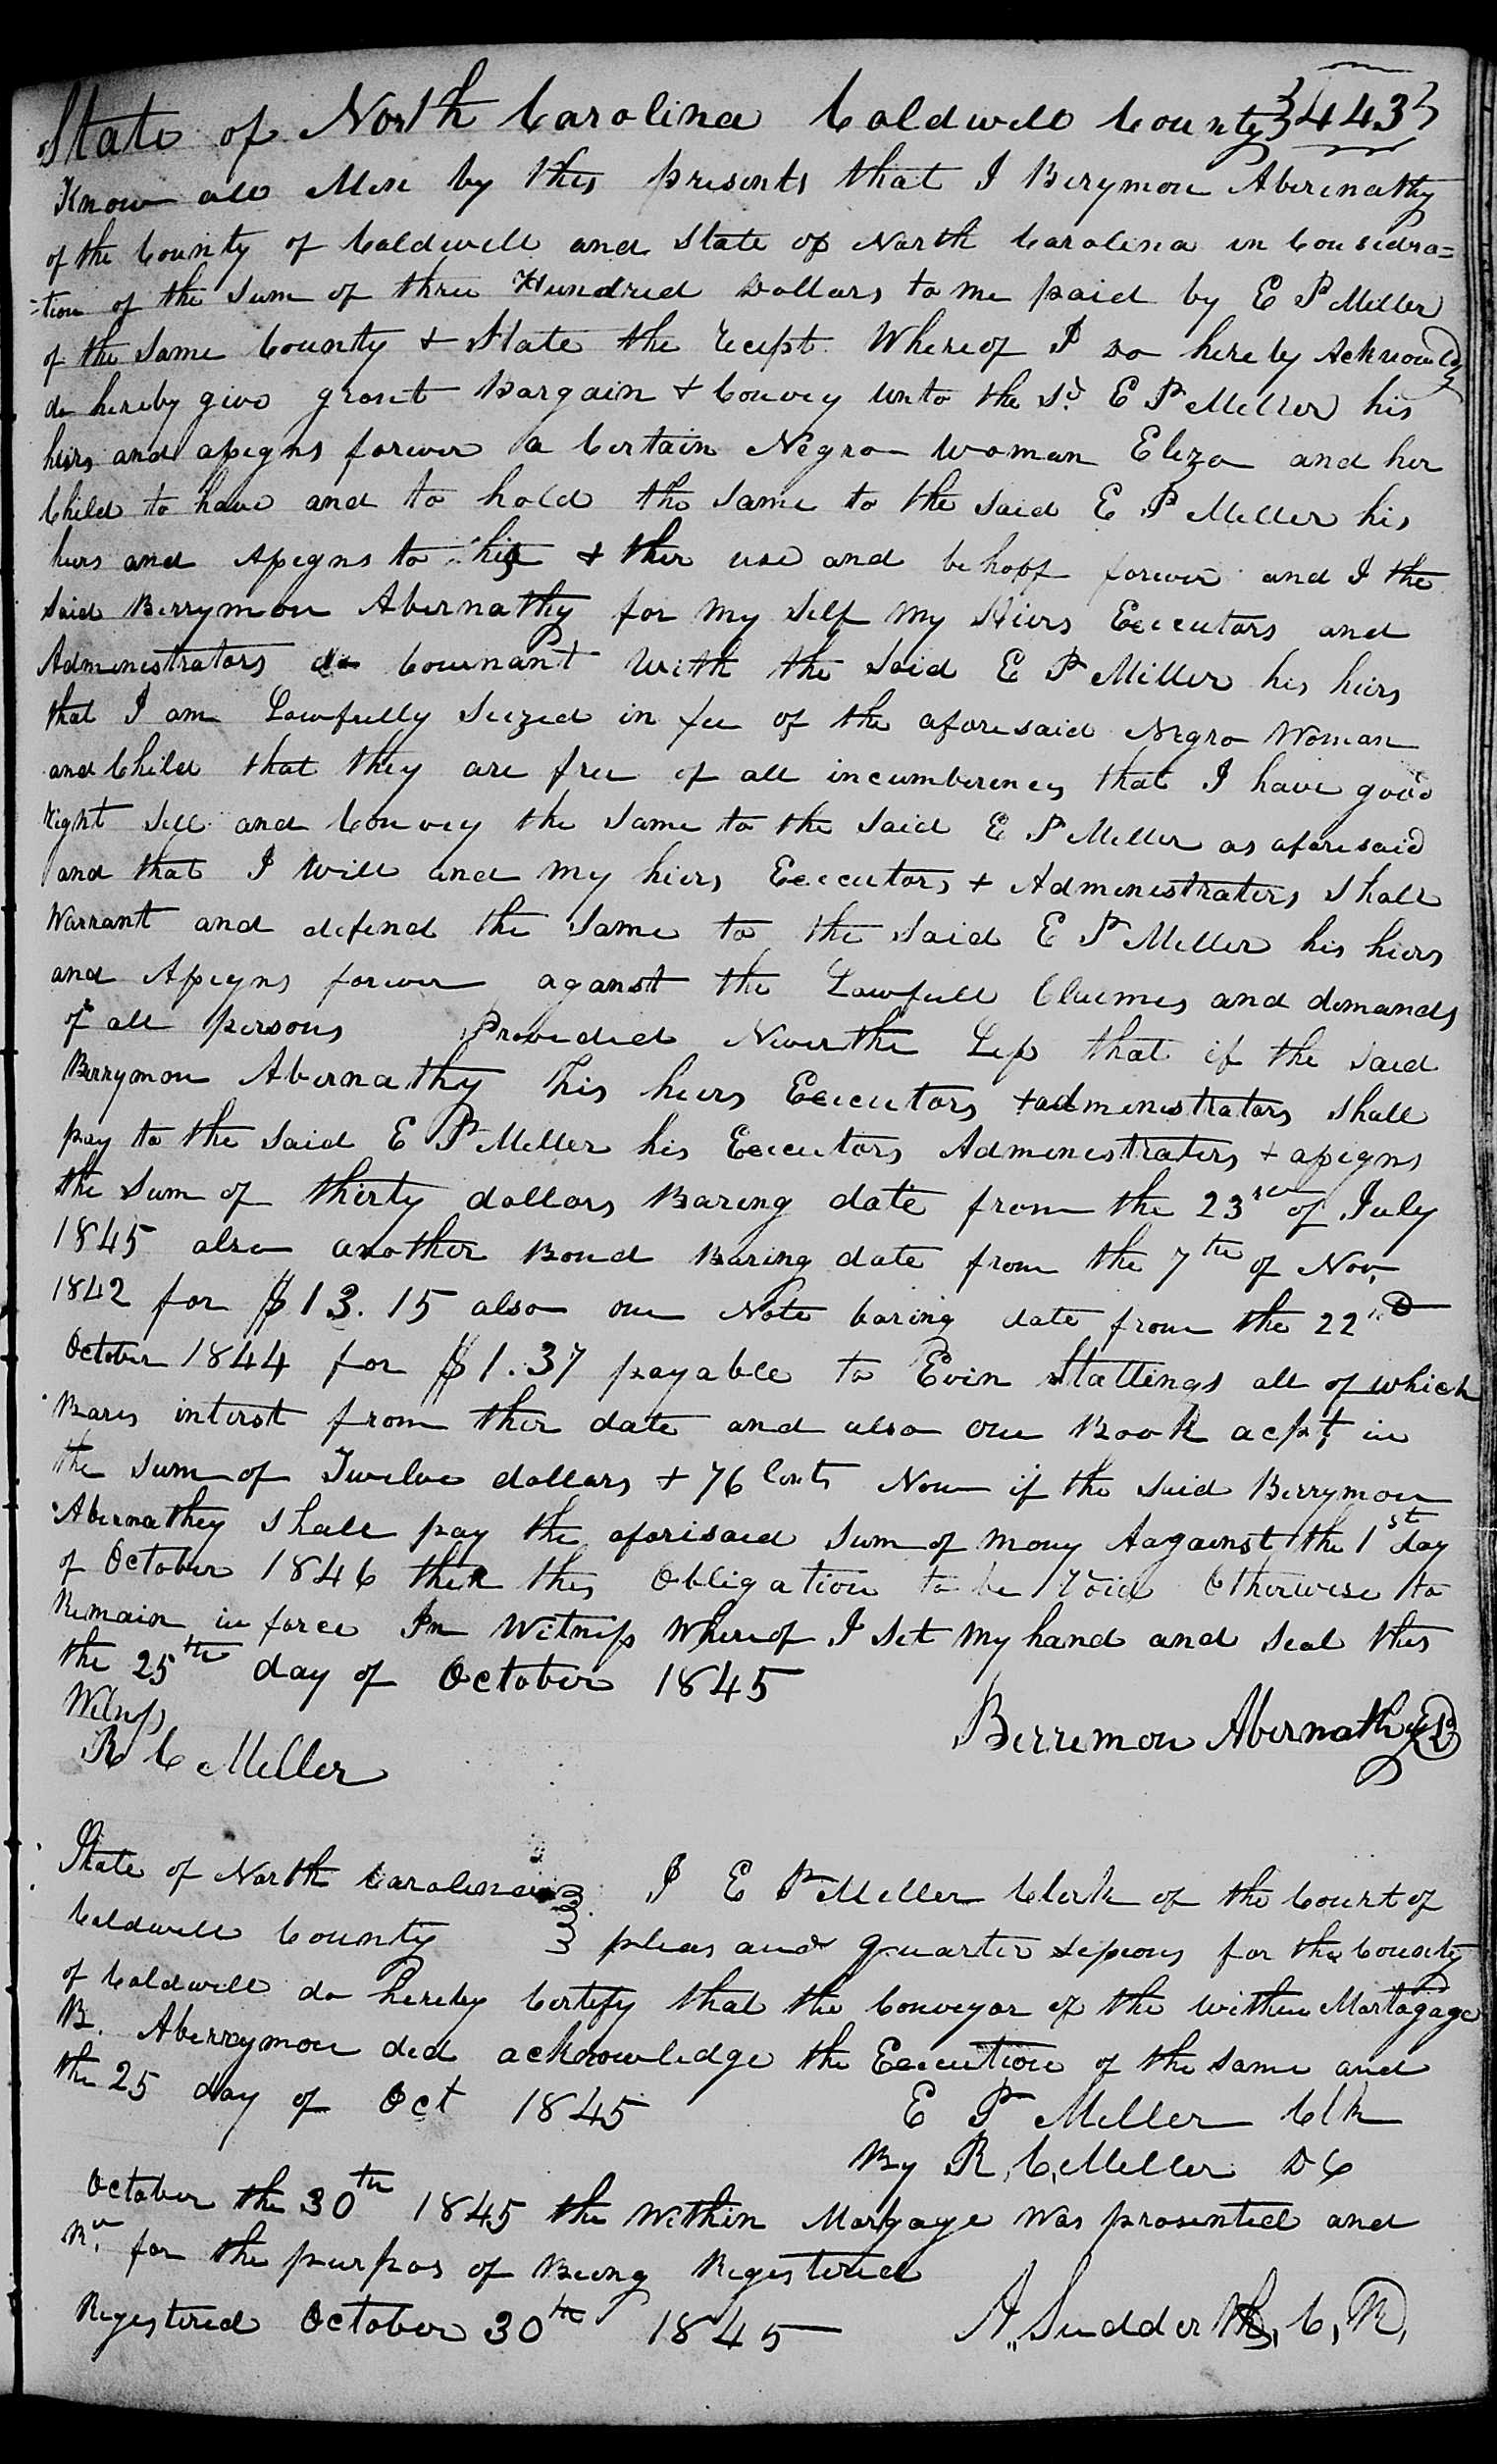 State of North Carolina Caldwell County 443
Know all Men by this presents that I Berymon Abernathy
of the County of Caldwell and State of North Carolina in Considra=
=tion of the sum of three Hundred Dollars to me paid by E P Miller
of the same County + State the recept Whereof I do hereby Acknowledg
do hereby give grant Bargain + Convey unto the Sd. E P Miller his
heirs and assigns forever a Certain Negro Woman Eliza and her
Child to have and to hold the same to the said E P Miller his
heirs and Assigns to his + ther use and behoof forever and I the
Said Berrymon Abernathy for my self my Hiers Executors and
Administrators do Covenant with the said E P Miller his heirs
that I am Lawfully Seized in fee of the aforesaid Negro Woman
and Child that they are free of all incumberences that I have good
right sell and Convey the same to the said E P Miller as aforesaid
and that I will and my hiers Executors + Administraters shall
Warrant and defend the same to the said E P Miller his hiers
and Assigns forever aganst the Lawfull Claimes and demands
of all persons Provided Never the Less that if the said
Berrymon Abernathy his hiers Executors + administrators shall
pay to the said E P Miller his Executors Administraters + assigns
the sum of thirty dollars Baring date from the 23rd of July
1845 also another Bond Baring date from the 7th of Nov,
1842 for $13.15 also one Note baring date from the 22nd
October 1844 for $1.37 payable to Evin Stallings all of which
Bares interst from ther date and also one Book acpt, in
the sum of Twelve dollars + 76 Cents Now if the said Berrymon
Abernathey shall pay the aforisaid sum of mony Aaganst the 1st day
of October 1846 then this Obligation to be Void Otherwise to
Remain in force In Witness Whereof I set my hand and seal this
the 25th day of October 1845
Witness
R C Miller Berremon Abernathy
State of North Carolina I E P Miller Clerk of the Court of
Caldwell County pleas and quarter sessions for the County
of Caldwell do hereby Certify that the Conveyor of the within Mortagage
B. Aberrymon did acknowledge the Execution of the same and
the 25 day of Oct 1845 E P Miller Clk
By R, C, Miller D C
October the 30th 1845 the Within Morgage was prosented and
for the purpos of Being Registered
Registered October 30th 1845 A,, Sudderth, C, R,